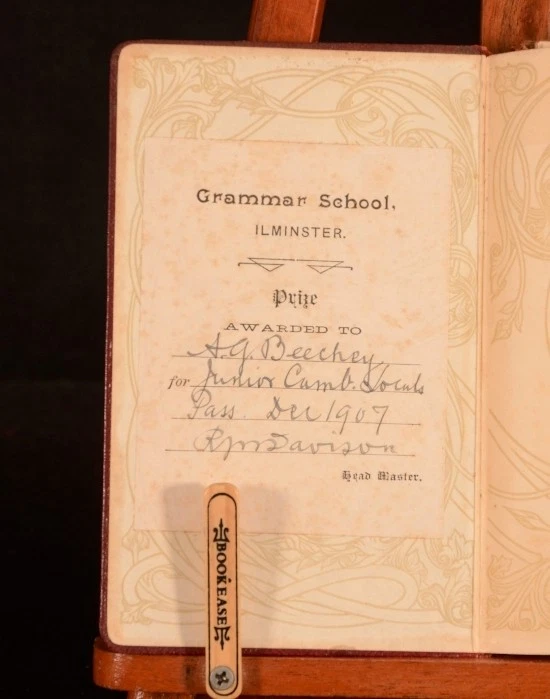 Grammar School,
ILMINSTER.
Prize
AWARDED TO
A.G. Beechey
for Junior Camb. Locals
Pass. Dec 1907
Davison
Head Master.
BOOKEASE